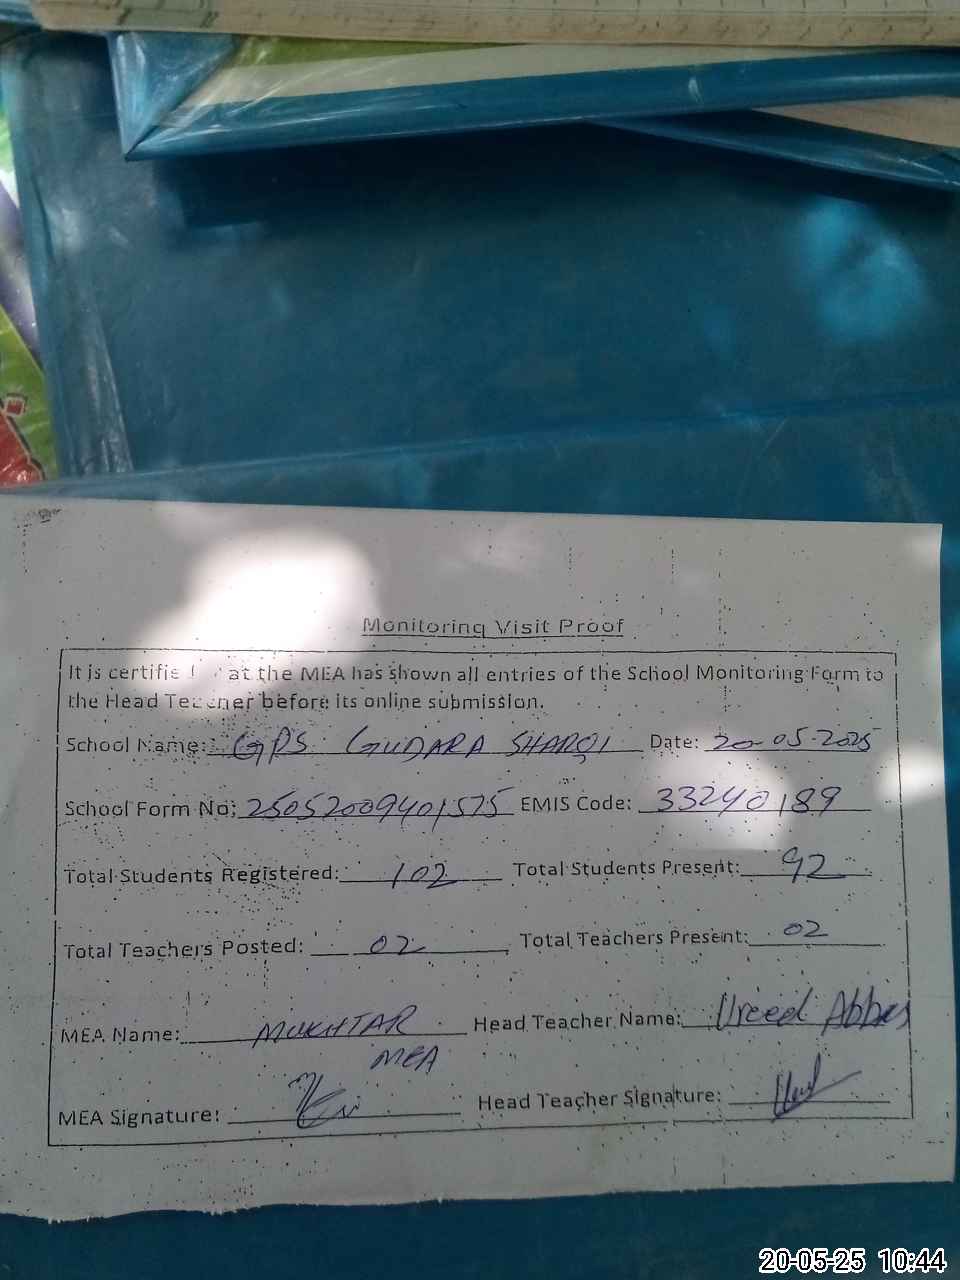 Monitoring Visit Proof
It is certified that the MEA has shown all entries of the School Monitoring Form to
the Head Teacher before its online submission.
School Name: GPS GUDARA SHARQI Date: 20-05-2025
School Form No: 25052009401575 EMIS Code: 33240189
Total Students Registered: 102 Total Students Present: 92
Total Teachers Posted: 02 Total Teachers Present: 02
MEA Name: MUKHTAR Head Teacher Name: Abbas
MEA
MEA Signature: Head Teacher Signature:
20-05-25 10:44